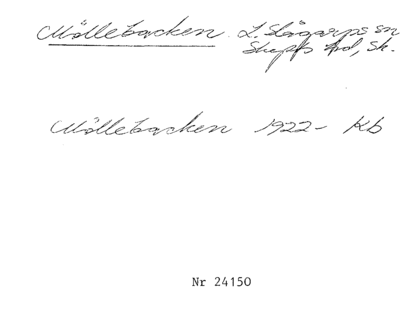 Möllebacken L. Slågarps sn
Skytts hd, Sk.
Möllebacken 1922- Kb
Nr 24150